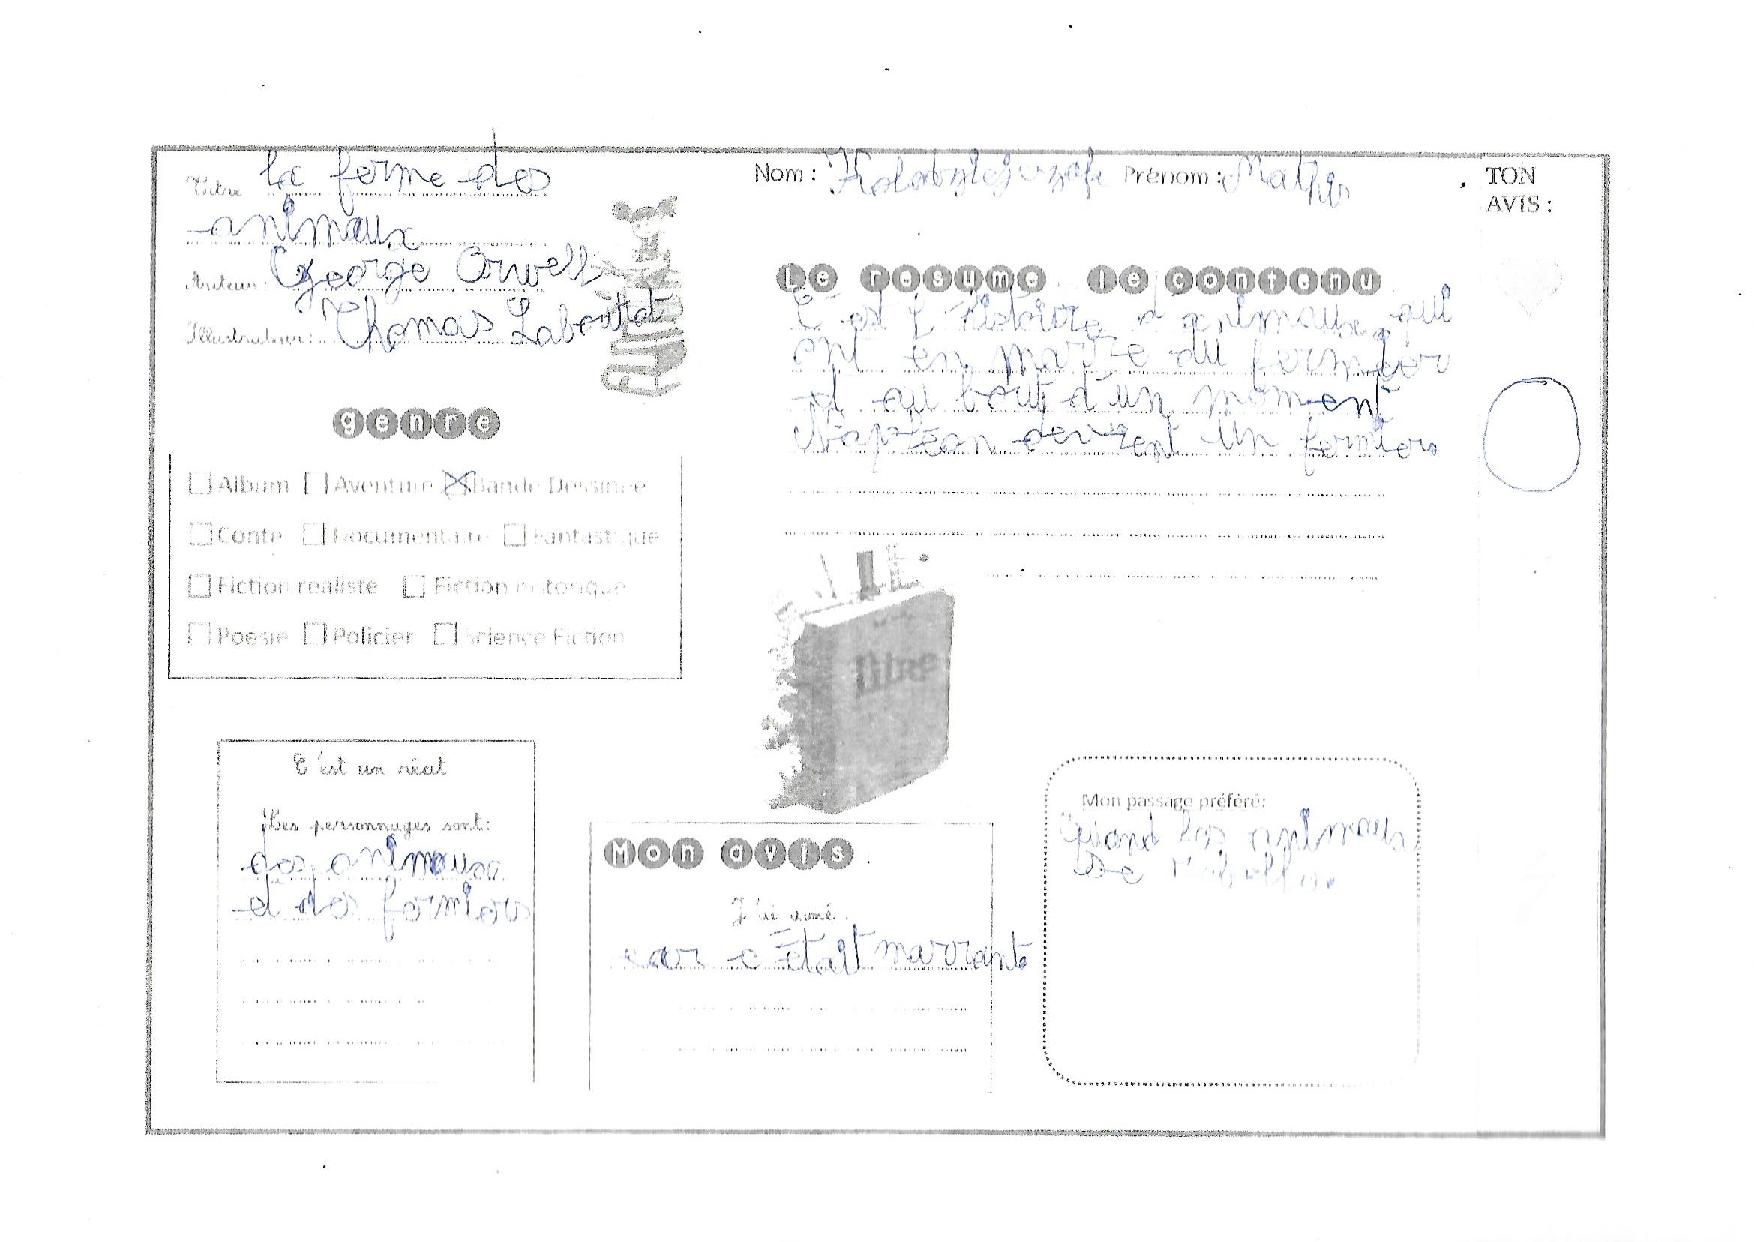 Titre la ferme des
animaux
Auteur: George Orwell
Illustrateur: Thomas Labourot
genre
Album Aventure Bande Dessinée
Conte Documentaire Fantastique
Fiction réaliste Fiction historique
Poésie Policier Science Fiction
C'est un récit
Les personnages sont:
des animaux
et des fermiers
Nom : Prénom :
Le résumé le contenu
C'est l'histoire d'animaux qui
ont en marre du fermier
et au bout d'un moment
Napléon devient un fermier
lire
Mon avis
J'ai aimé
car c'était marrante
Mon passage préféré:
Quand les animaux
se
TON
AVIS :